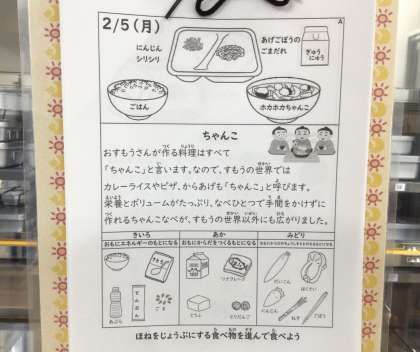 2/5(月)
A
にんじん
シリシリ
あげごぼうの
ごまだれ
ぎゅう
にゅう
ごはん
ホカホカちゃんこ
ちゃんこ
おすもうさんが作る料理はすべて
「ちゃんこ」と言います。なので、すもうの世界では
カレーライスやピザ、からあげも「ちゃんこ」と呼びます。
栄養とボリュームがたっぷり、なべひとつで手間をかけずに
作れるちゃんこなべが、すもうの世界以外にも広がりました。
きいろ
あか
みどり
おもにエネルギーのもとになる
おもにからだをつくるもとになる
ツナフレーク
だいこん
はくさい
あぶら
でんぷん
ごま
とうふ
とりだんご
にんじん
ねぎ
ごぼう
ほねをじょうぶにする食べ物を進んで食べよう